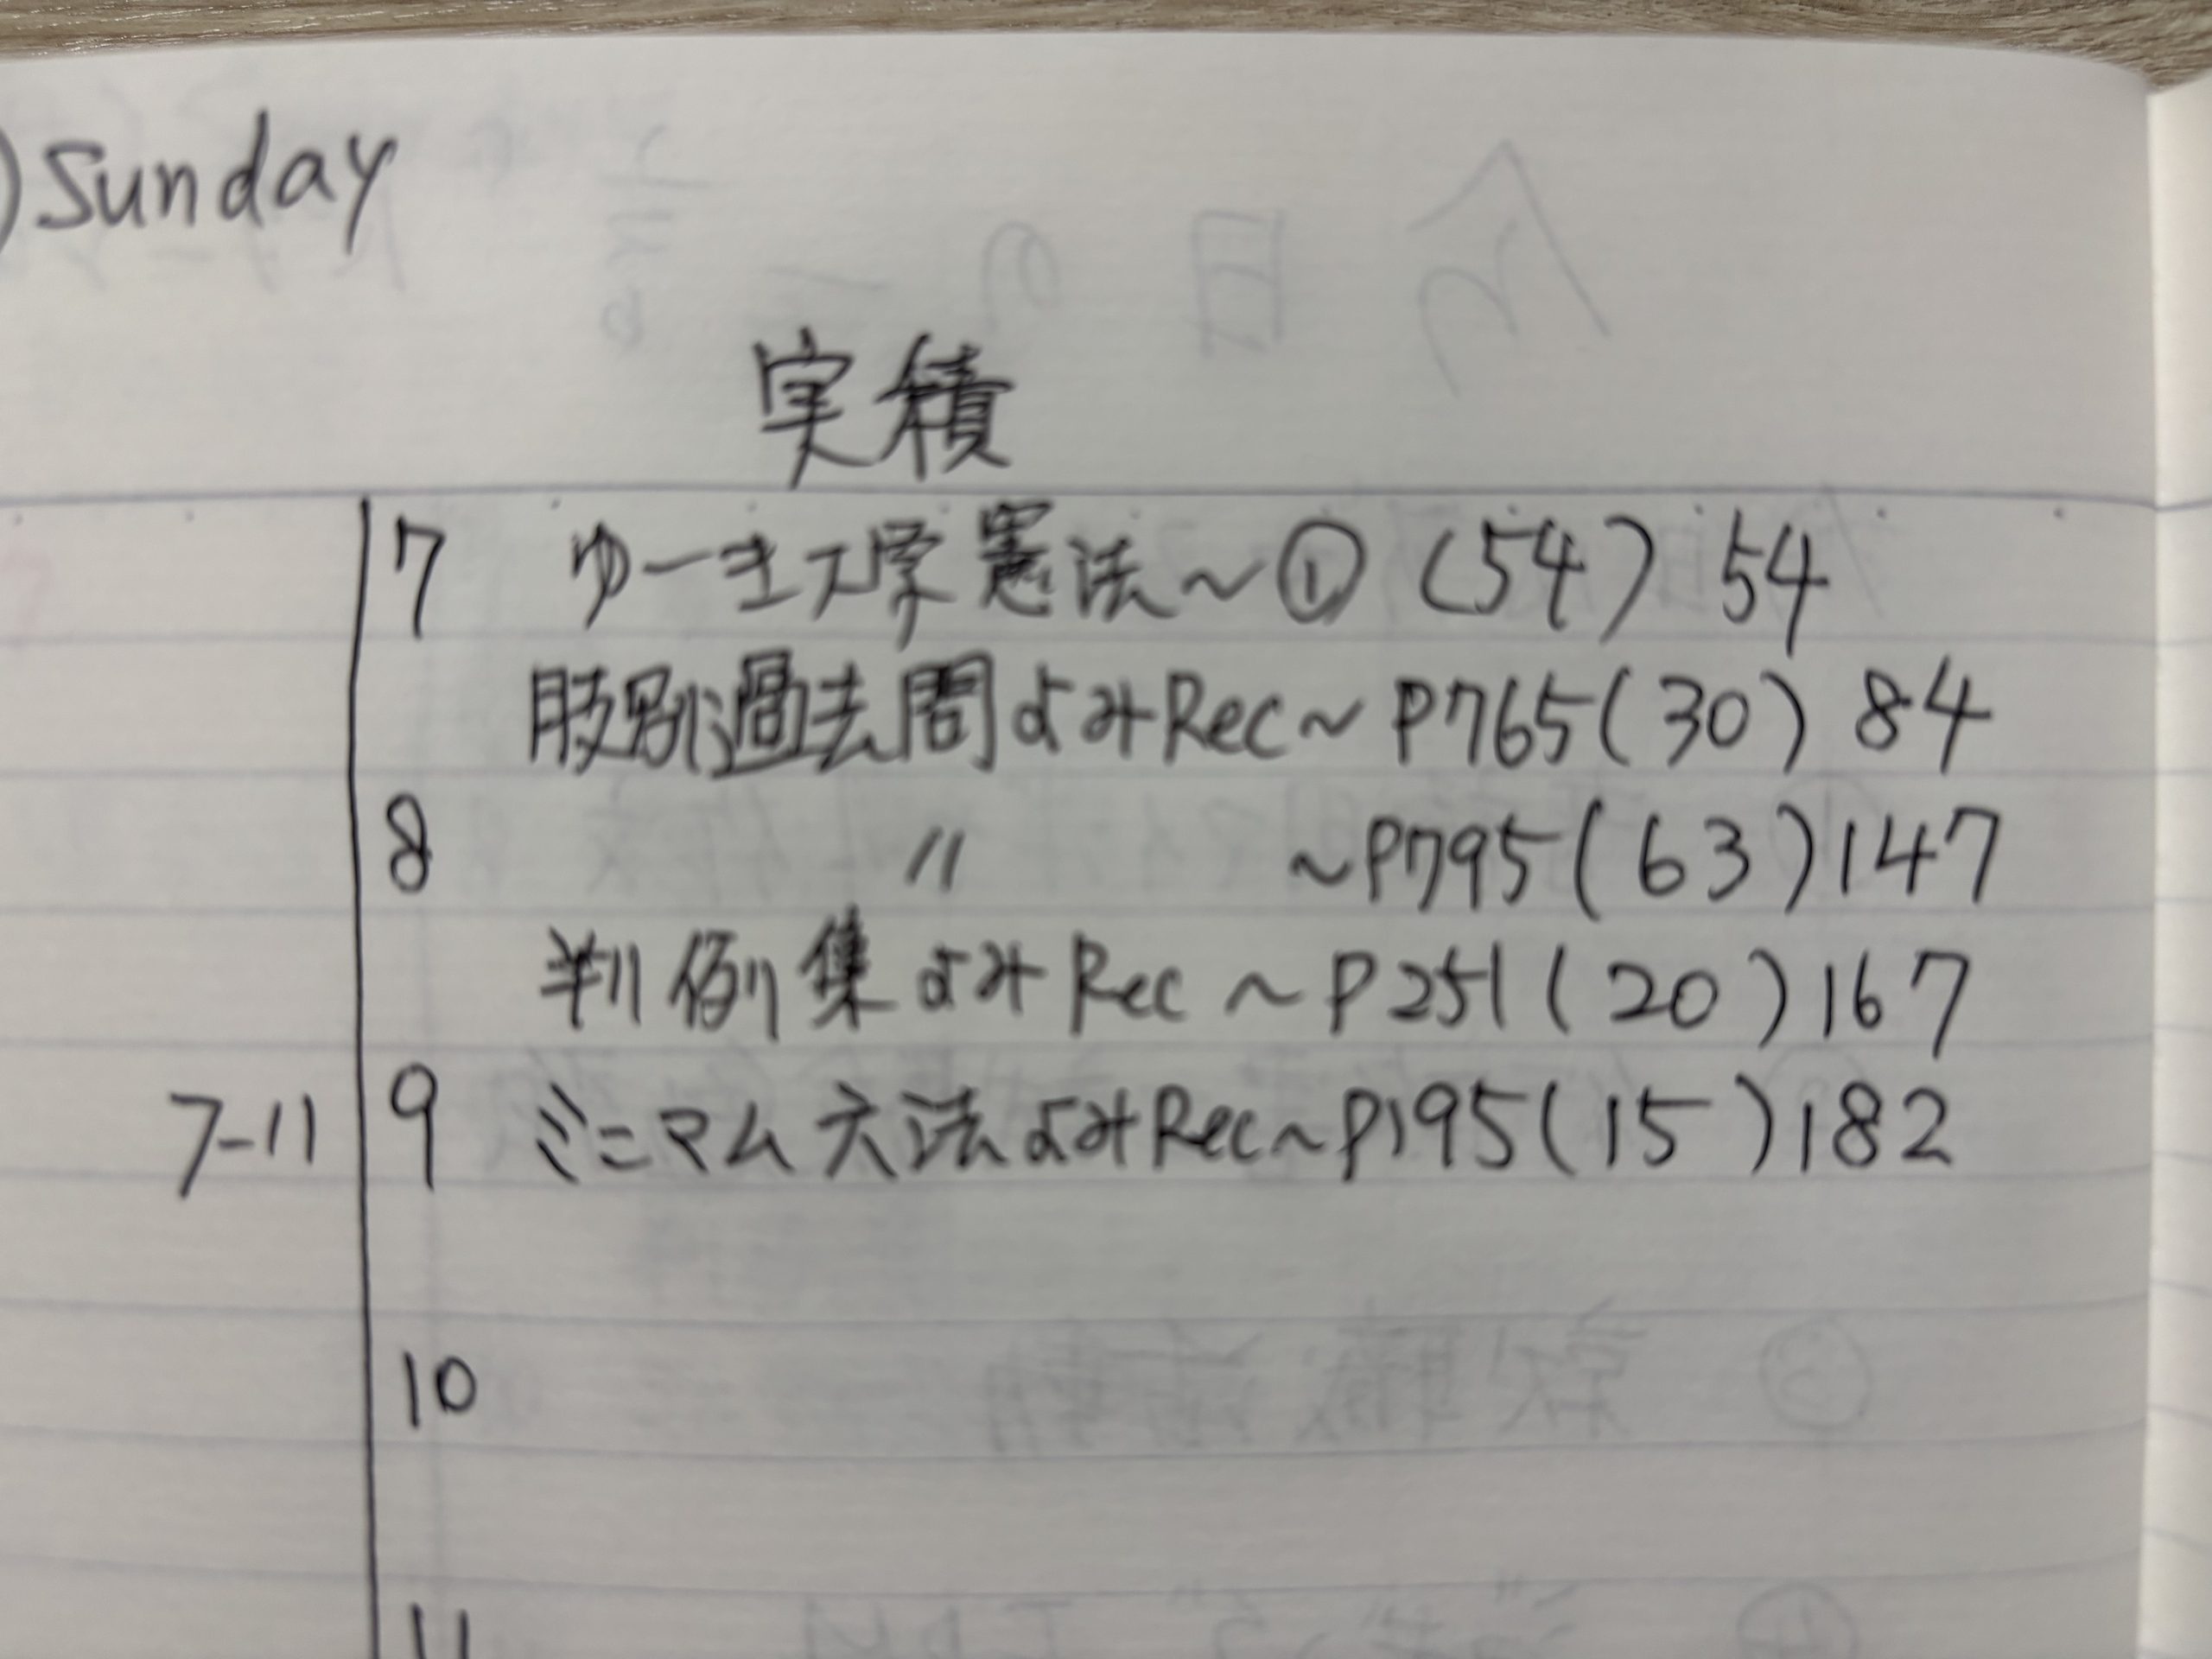 )Sunday
実積
7 ゆーき大学憲法~① (54) 54
肢別過去問よみRec~P765(30) 84
8 〃 ~P795(63)147
判例集よみRec~P251(20)167
7-11 9 ミニマム六法よみRec~P195(15)182
10
11